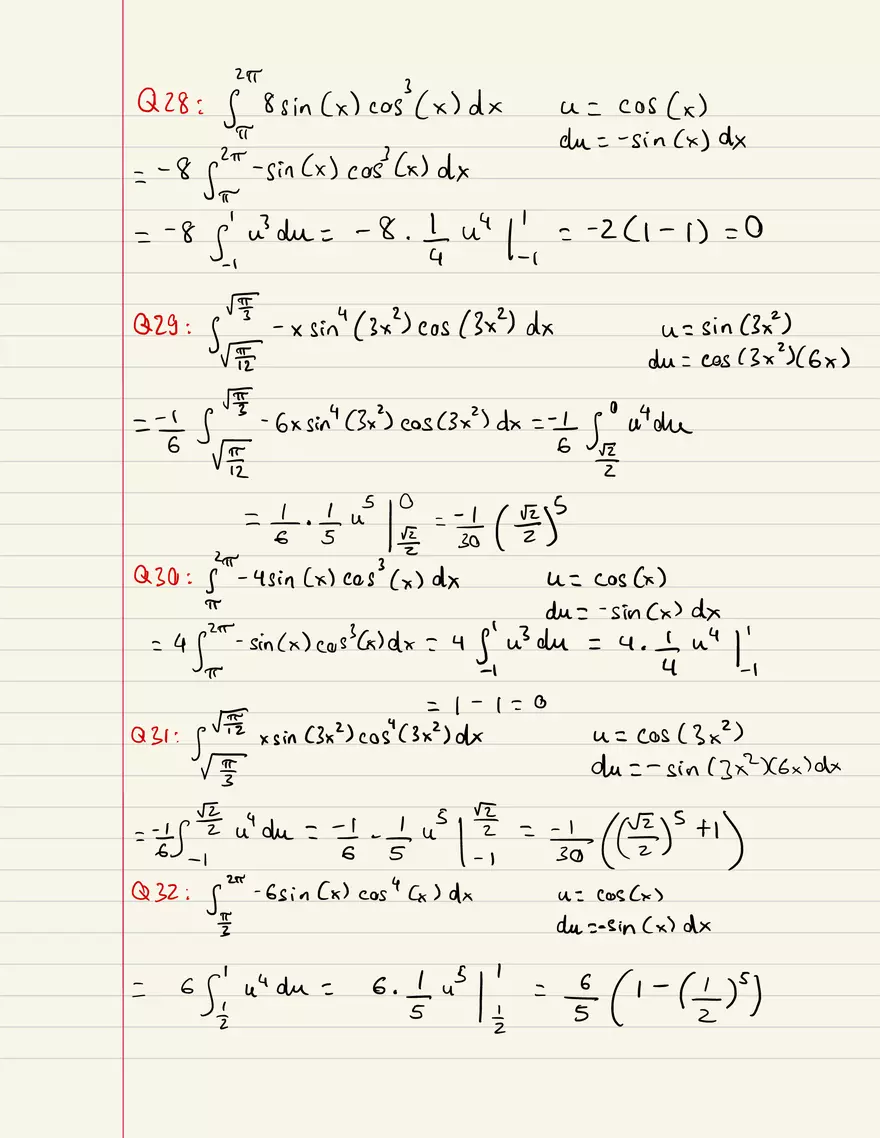 Q28: ∫_π^{2π} 8 sin(x) cos³(x) dx    u = cos(x)
du = -sin(x) dx
= -8 ∫_π^{2π} -sin(x) cos³(x) dx
= -8 ∫_{-1}^{1} u³ du = -8 · 1/4 u⁴ |_{-1}^{1} = -2(1-1) = 0
Q29: ∫_{√(π/12)}^{√(π/3)} -x sin⁴(3x²) cos(3x²) dx    u = sin(3x²)
du = cos(3x²)(6x)
= -1/6 ∫_{√(π/12)}^{√(π/3)} -6x sin⁴(3x²) cos(3x²) dx = -1/6 ∫_{√2/2}^{0} u⁴ du
= 1/6 · 1/5 u⁵ |_{√2/2}^{0} = -1/30 (√2/2)⁵
Q30: ∫_π^{2π} -4 sin(x) cos³(x) dx    u = cos(x)
du = -sin(x) dx
= 4 ∫_π^{2π} -sin(x) cos³(x) dx = 4 ∫_{-1}^{1} u³ du = 4 · 1/4 u⁴ |_{-1}^{1}
= 1 - 1 = 0
Q31: ∫_{√(π/3)}^{√(π/12)} x sin(3x²) cos⁴(3x²) dx    u = cos(3x²)
du = -sin(3x²)(6x) dx
= -1/6 ∫_{-1}^{√2/2} u⁴ du = -1/6 · 1/5 u⁵ |_{-1}^{√2/2} = -1/30 ((√2/2)⁵ + 1)
Q32: ∫_{π/3}^{2π} -6 sin(x) cos⁴(x) dx    u = cos(x)
du = -sin(x) dx
= 6 ∫_{1/2}^{1} u⁴ du = 6 · 1/5 u⁵ |_{1/2}^{1} = 6/5 (1 - (1/2)⁵)